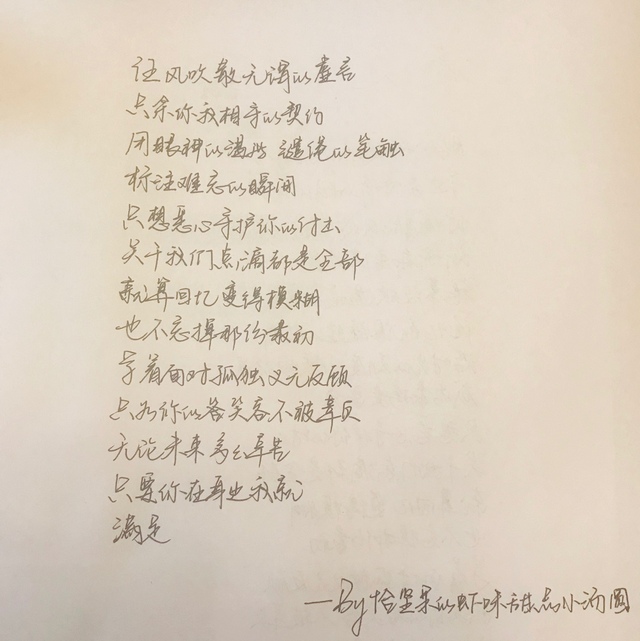 任风吹散无谓的虚言
只余你我相守的契约
闭眼神的温热 缱绻的笔触
标注难忘的瞬间
只想悉心守护你的付出
关于我们点滴都是全部
就算回忆变得模糊
也不忘掉那份最初
学着面对孤独义无反顾
只为你的答笑容不被辜负
无论未来多么辛苦
只要你在身边我就
满足
——By恰坚果的虾味甜点小汤圆